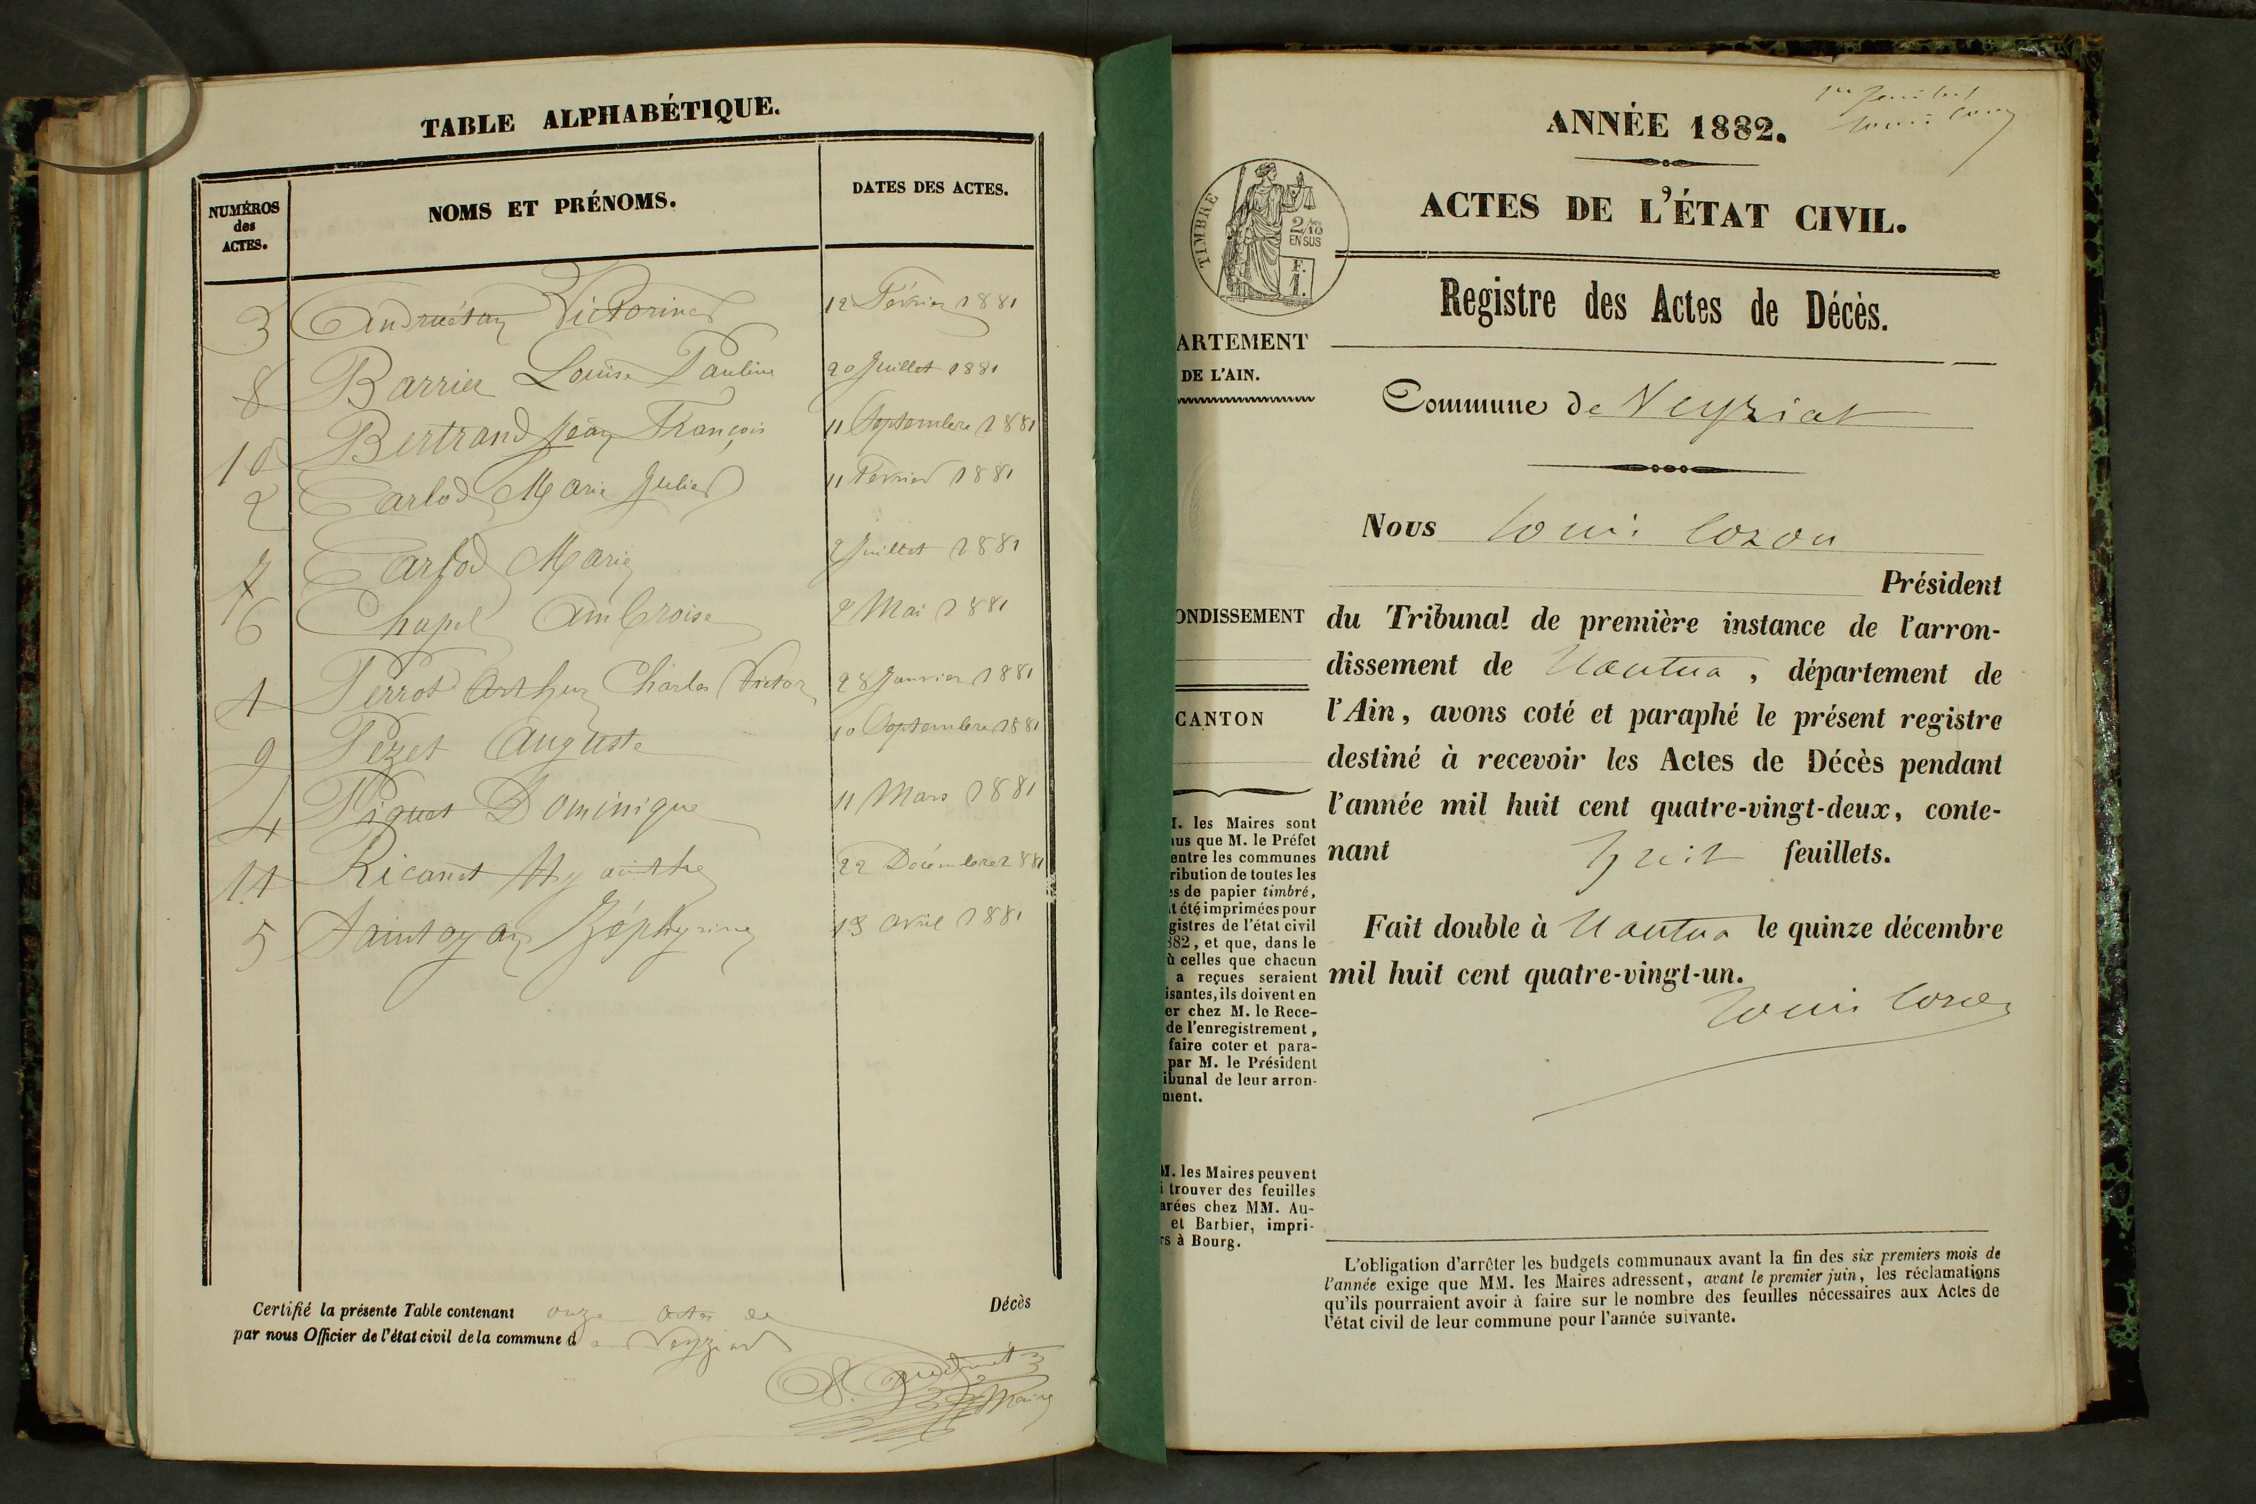 TABLE ALPHABÉTIQUE.
NUMÉROS
des
ACTES.
NOMS ET PRÉNOMS.
DATES DES ACTES.
3 Andruétan Victorine 12 Février 1881
8 Barrier Louise Pauline 20 Juillet 1881
10 Bertrand Jean François 11 Septembre 1881
2 Carlod Marie Julie 11 Février 1881
7 Carlod Marie 2 Juillet 1881
6 Chapel Ambroise 2 Mai 1881
1 Perrot Arthur Charles Victor 28 Janvier 1881
9 Pezet Auguste 10 Septembre 1881
4 Piquet Dominique 11 Mars 1881
11 Ricanet Hyacinthe 22 Décembre 1881
5 Saintoyan Zéphyrine 13 avril 1881
Certifié la présente Table contenant onze actes de Décès
par nous Officier de l'état civil de la commune de Veyziat
Maire
1er feuillet
Louis Cozon
ANNÉE 1882.
ACTES DE L'ÉTAT CIVIL.
TIMBRE
2/10
EN SUS
F.
1.
Registre des Actes de Décès.
ARTEMENT
DE L'AIN.
Commune de Veyziat
Nous Louis Cozon
Président
ONDISSEMENT
du Tribunal de première instance de l'arron-
dissement de Nantua, département de
CANTON
l'Ain, avons coté et paraphé le présent registre
destiné à recevoir les Actes de Décès pendant
l'année mil huit cent quatre-vingt-deux, conte-
nant huit feuillets.
Fait double à Nantua le quinze décembre
mil huit cent quatre-vingt-un.
Louis Cozon
M. les Maires sont
nus que M. le Préfet
entre les communes
ribution de toutes les
es de papier timbré,
t été imprimées pour
gistres de l'état civil
882, et que, dans le
ù celles que chacun
a reçues seraient
isantes, ils doivent en
er chez M. le Rece-
de l'enregistrement,
faire coter et para-
par M. le Président
ibunal de leur arron-
ment.
M. les Maires peuvent
i trouver des feuilles
arées chez MM. Au-
et Barbier, impri-
rs à Bourg.
L'obligation d'arrêter les budgets communaux avant la fin des six premiers mois de
l'année exige que MM. les Maires adressent, avant le premier juin, les réclamations
qu'ils pourraient avoir à faire sur le nombre des feuilles nécessaires aux Actes de
l'état civil de leur commune pour l'année suivante.